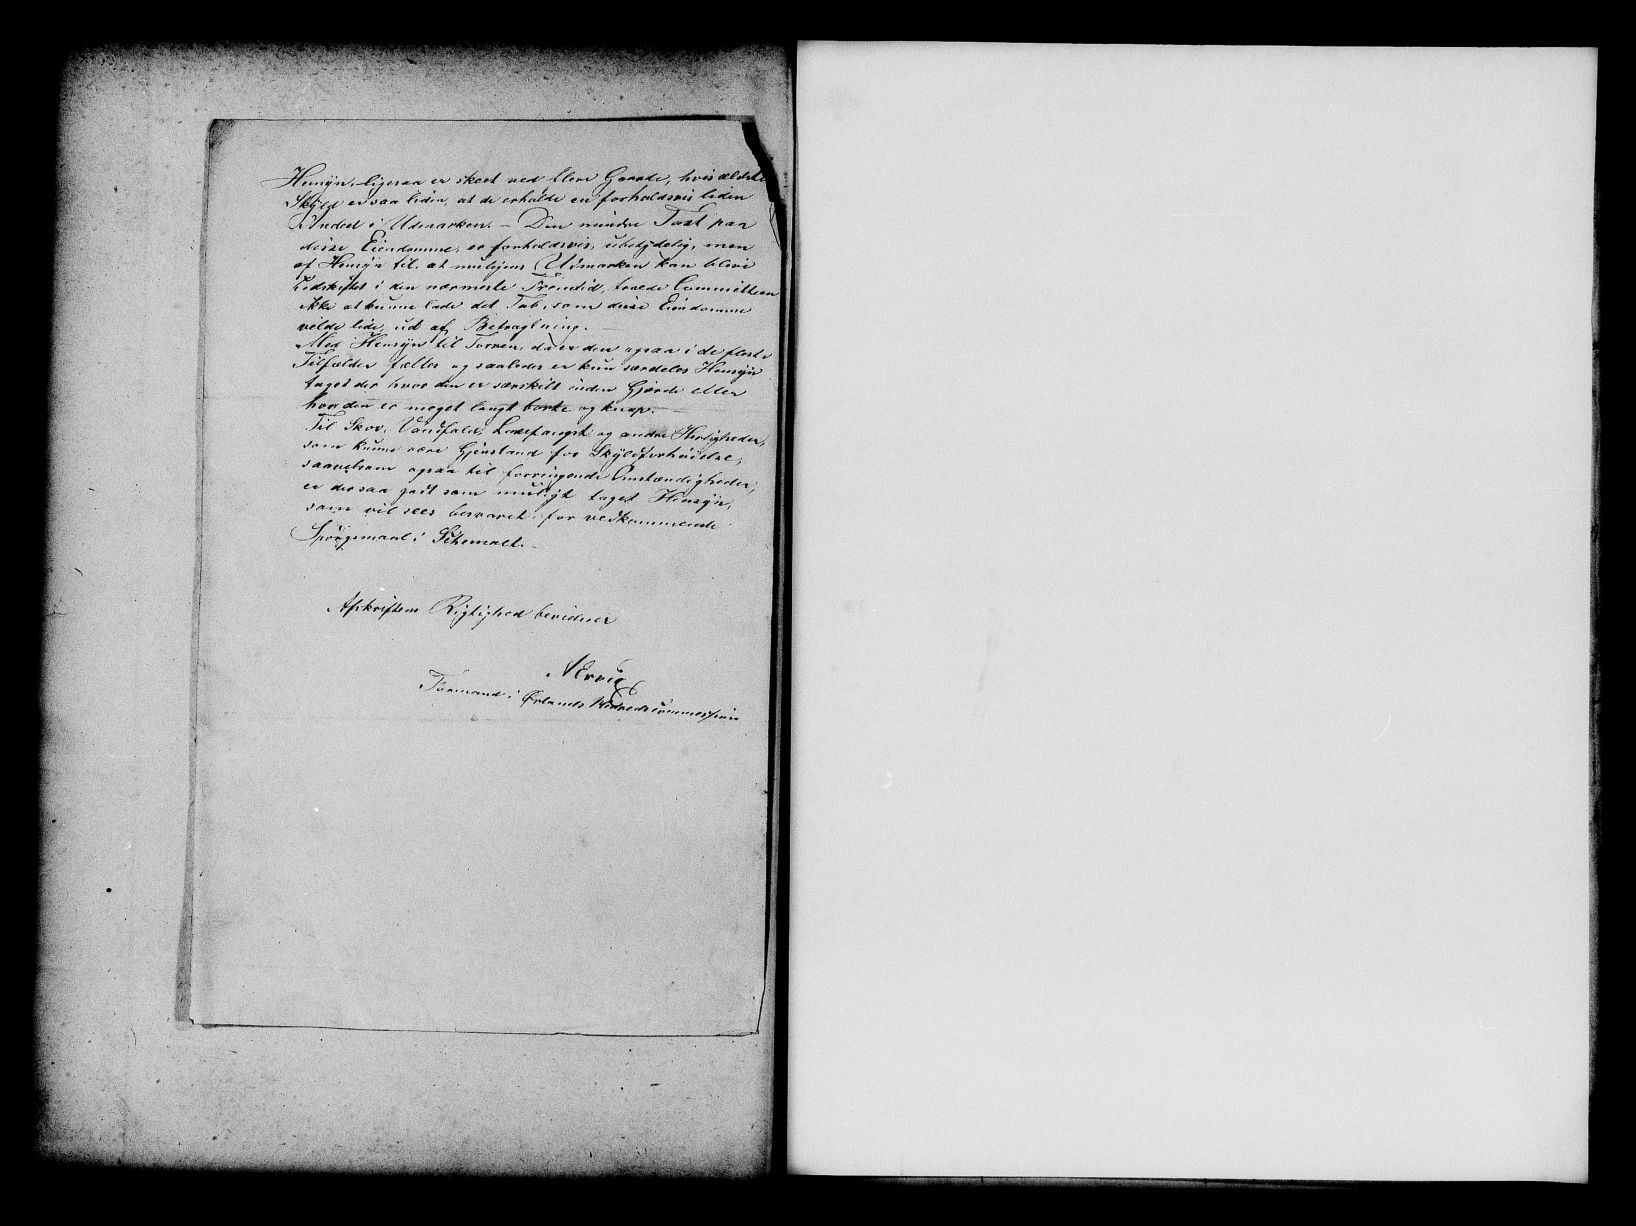 Hensyn, ligesaa er skeet ved flere Gaarde, hvis ældste
Skyld er saa liden, at de erholde en forholdsvis liden
Andeel i Udmarken. – Den mindre Taxt paa
disse Eiendomme, er forholdsvis, ubetydelig, men
af Hensyn til, at muligens Udmarken kan blive
udskiftet i den nærmeste Fremtid, troede Committeen
ikke at kunne lade det Tab, som disse Eiendomme
vilde lide, ud af Betragtning. –
Med Hensyn til Torven, da er den ogsaa i de fleste
Tilfælder fælles og saaledes er kun særdeles Hensyn
taget der hvor den er særskilt inden Gjerde eller
hvor den er meget langt borte og knap. –
Til Skov, Vandfald, Laxefangst og andre Herligheder,
som kunne være Gjenstand for Skyldforhøielse,
saavelsom ogsaa til forringende Omstændigheder,
er der saa godt som muligt taget Hensyn,
som vil sees besvaret for vedkommende
Spørgsmaal i Schemalt. –
Afskriftens Rigtighed bevidner
Formand i Ørlands Herredscommession